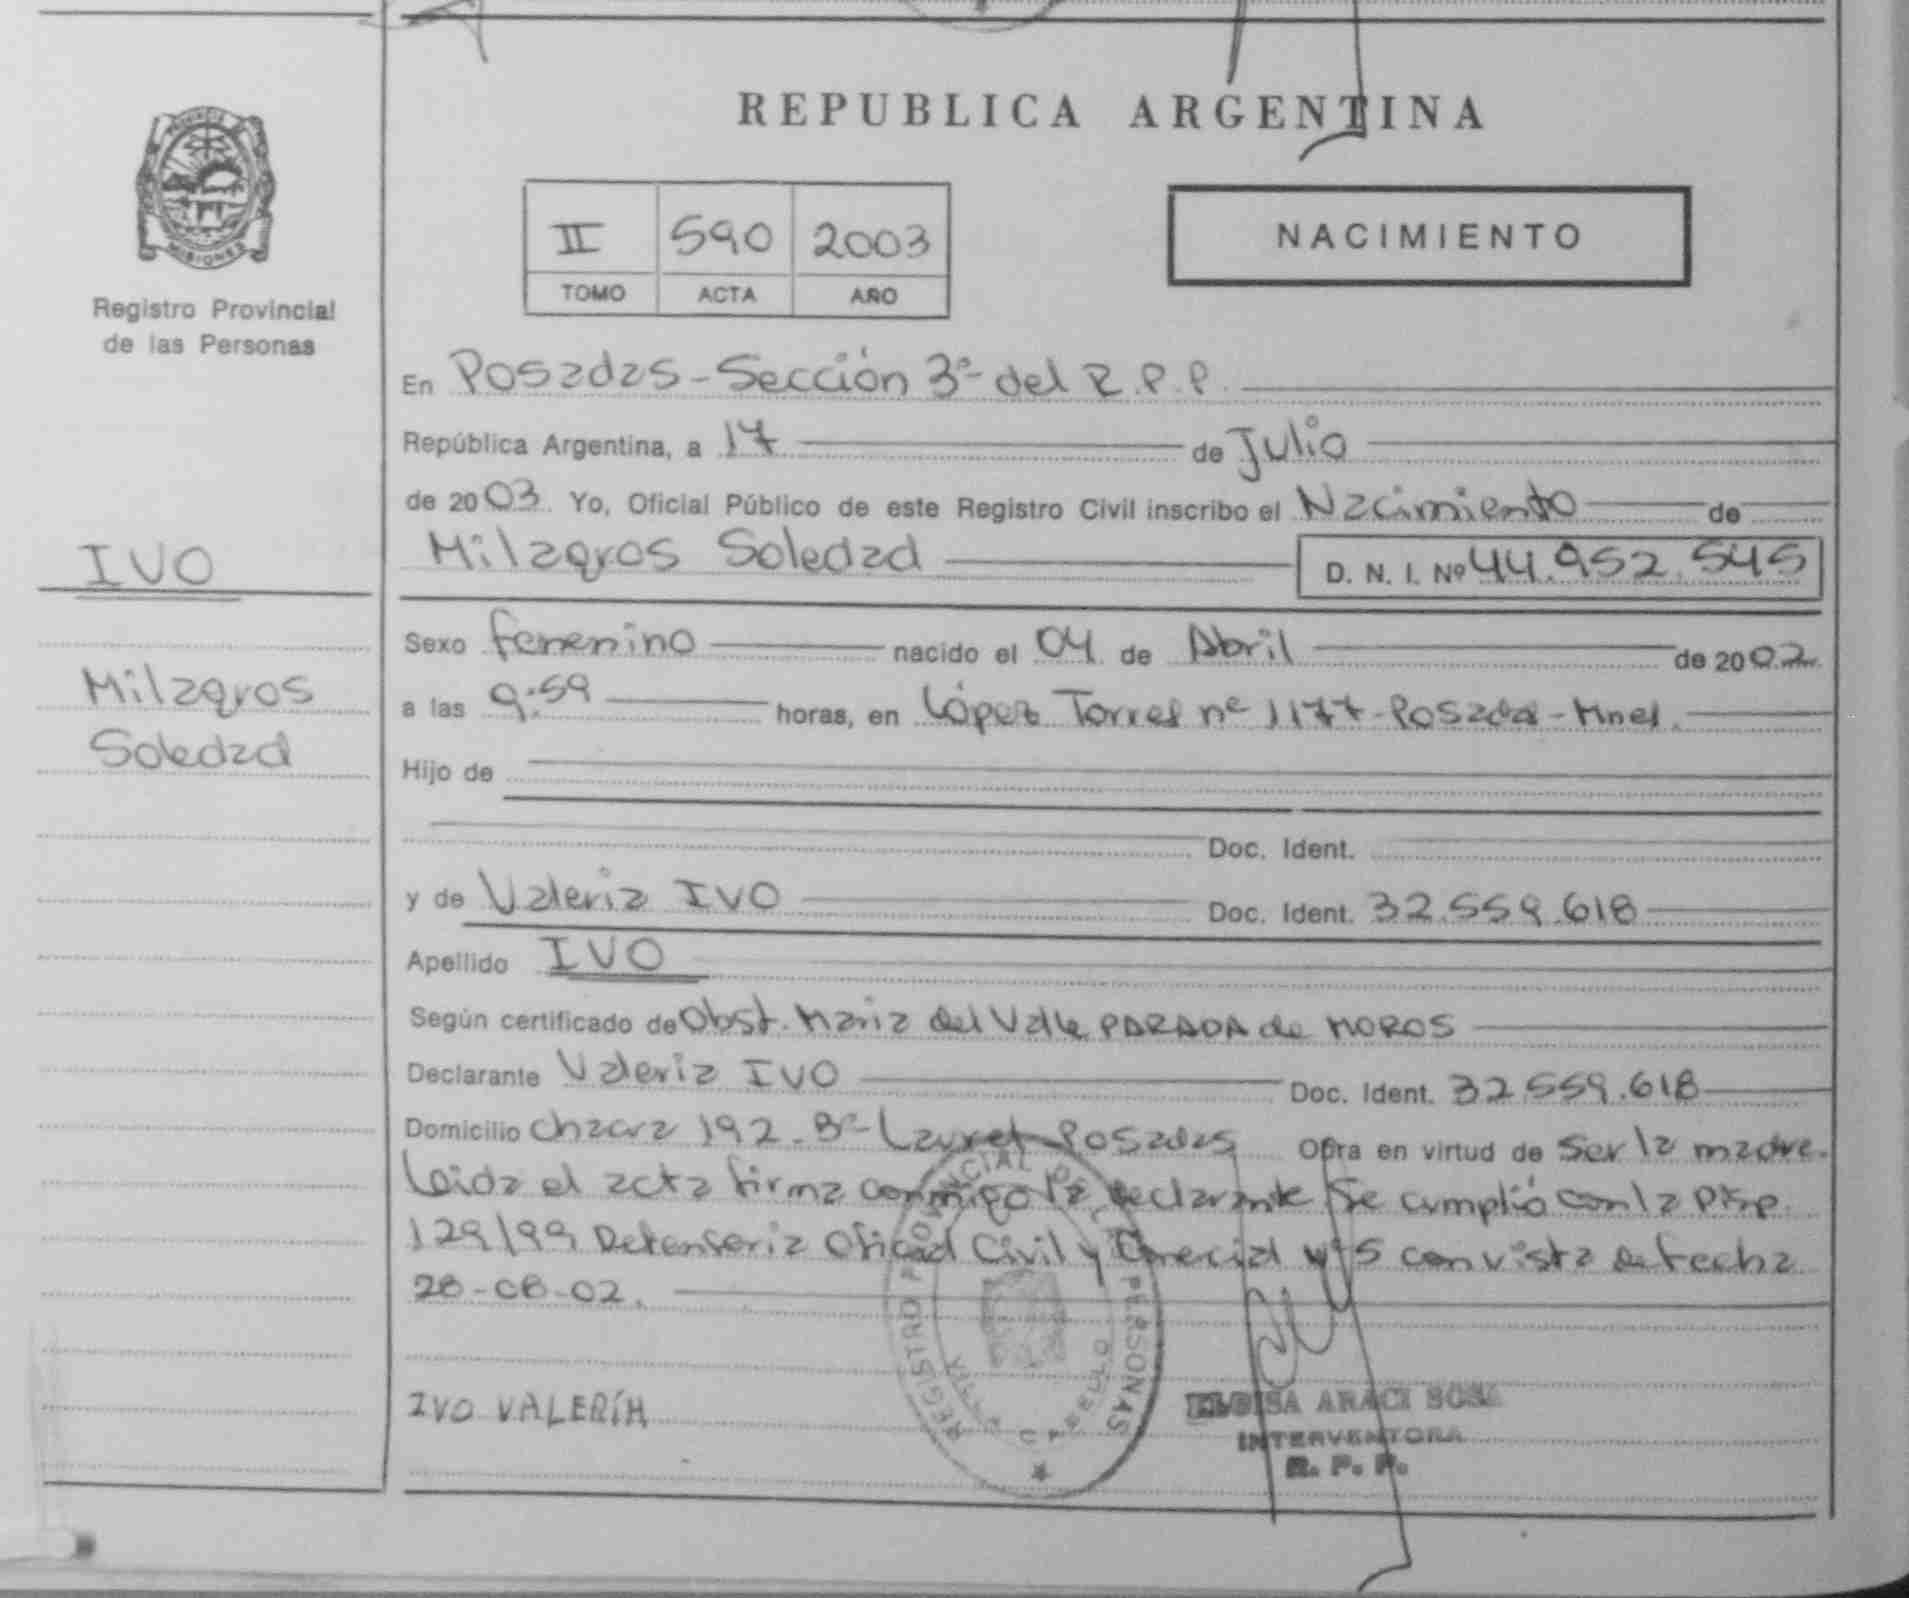 REPUBLICA ARGENTINA
PROVINCIA DE
MISIONES
Registro Provincial
de las Personas
II 590 2003
TOMO ACTA AÑO
NACIMIENTO
En Posadas - Sección 3ª del R.P.P.
República Argentina, a 17 de Julio
de 2003. Yo, Oficial Público de este Registro Civil inscribo el Nacimiento de
Milagros Soledad D. N. I. Nº 44.952.545
IVO
Milagros
Soledad
Sexo femenino nacido el 04 de Abril de 2002
a las 9:59 horas, en López Torres nº 1177 - Posadas - Mnes.
Hijo de
Doc. Ident.
y de Valeria IVO Doc. Ident. 32.559.618
Apellido IVO
Según certificado de Obst. Maria del Valle PARADA de MOROS
Declarante Valeria IVO Doc. Ident. 32.559.618
Domicilio chacra 192 - Bº Posadas Obra en virtud de ser la madre.
Leida el acta firma conmigo la declarante Se cumplió con la Disp.
129/99 Defensoria Oficial Civil y Comercial nº 5 con vista de fecha
28-08-02.
IVO VALERIA
REGISTRO PROVINCIAL DE LAS PERSONAS
VILLA CABELLO
ELOISA ARACI SOSA
INTERVENTORA
R. P. P.